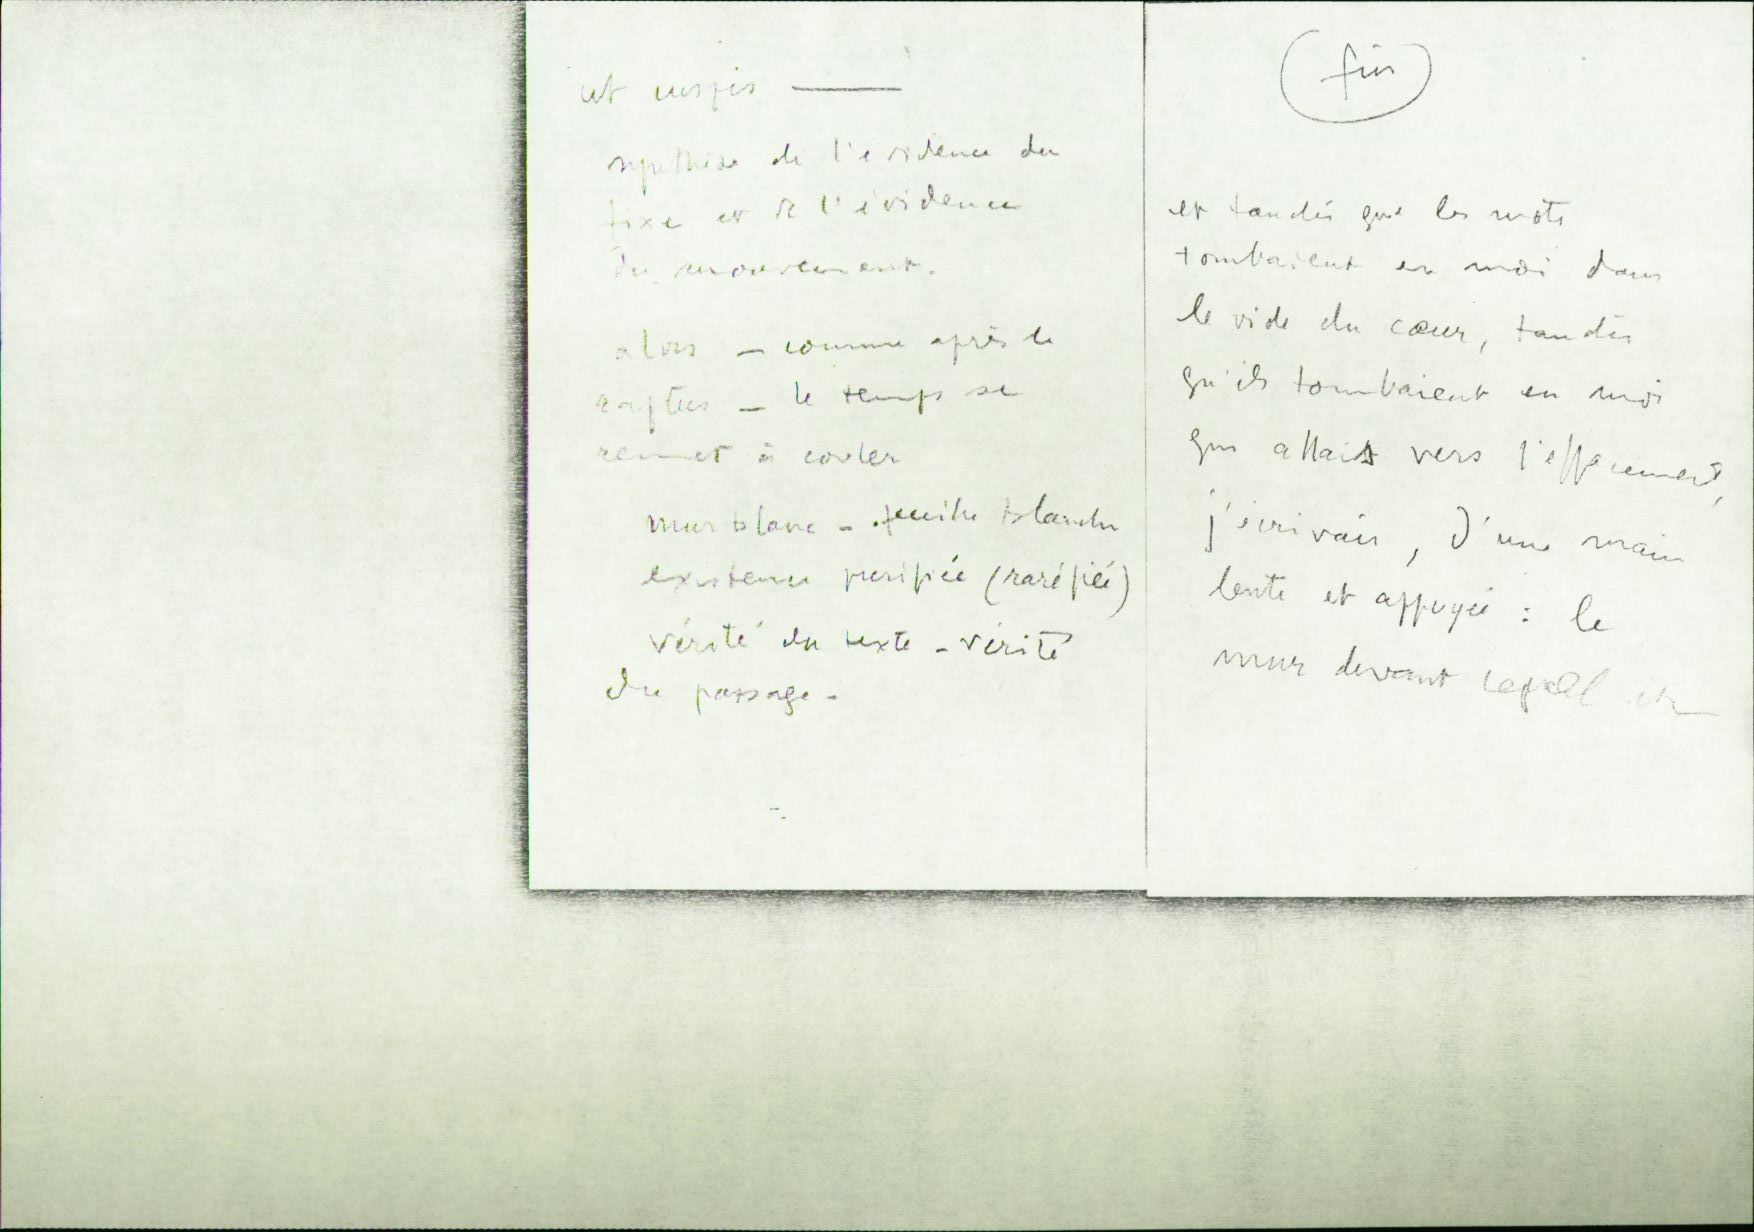 synthèse de l'évidence du
fixe et de l'évidence
du mouvement.
alors – comme après le
raptus – le temps se
remet à couler
mur blanc – feuille blanche
existence purifiée (raréfiée)
vérité du texte – vérité
du passage –
(fin)
et tandis que les mots
tombaient en moi dans
le vide du cœur, tandis
qu'ils tombaient en moi
qui allais vers l'effacement,
j'écrivais, d'une main
lente et appuyée : le
mur devant lequel